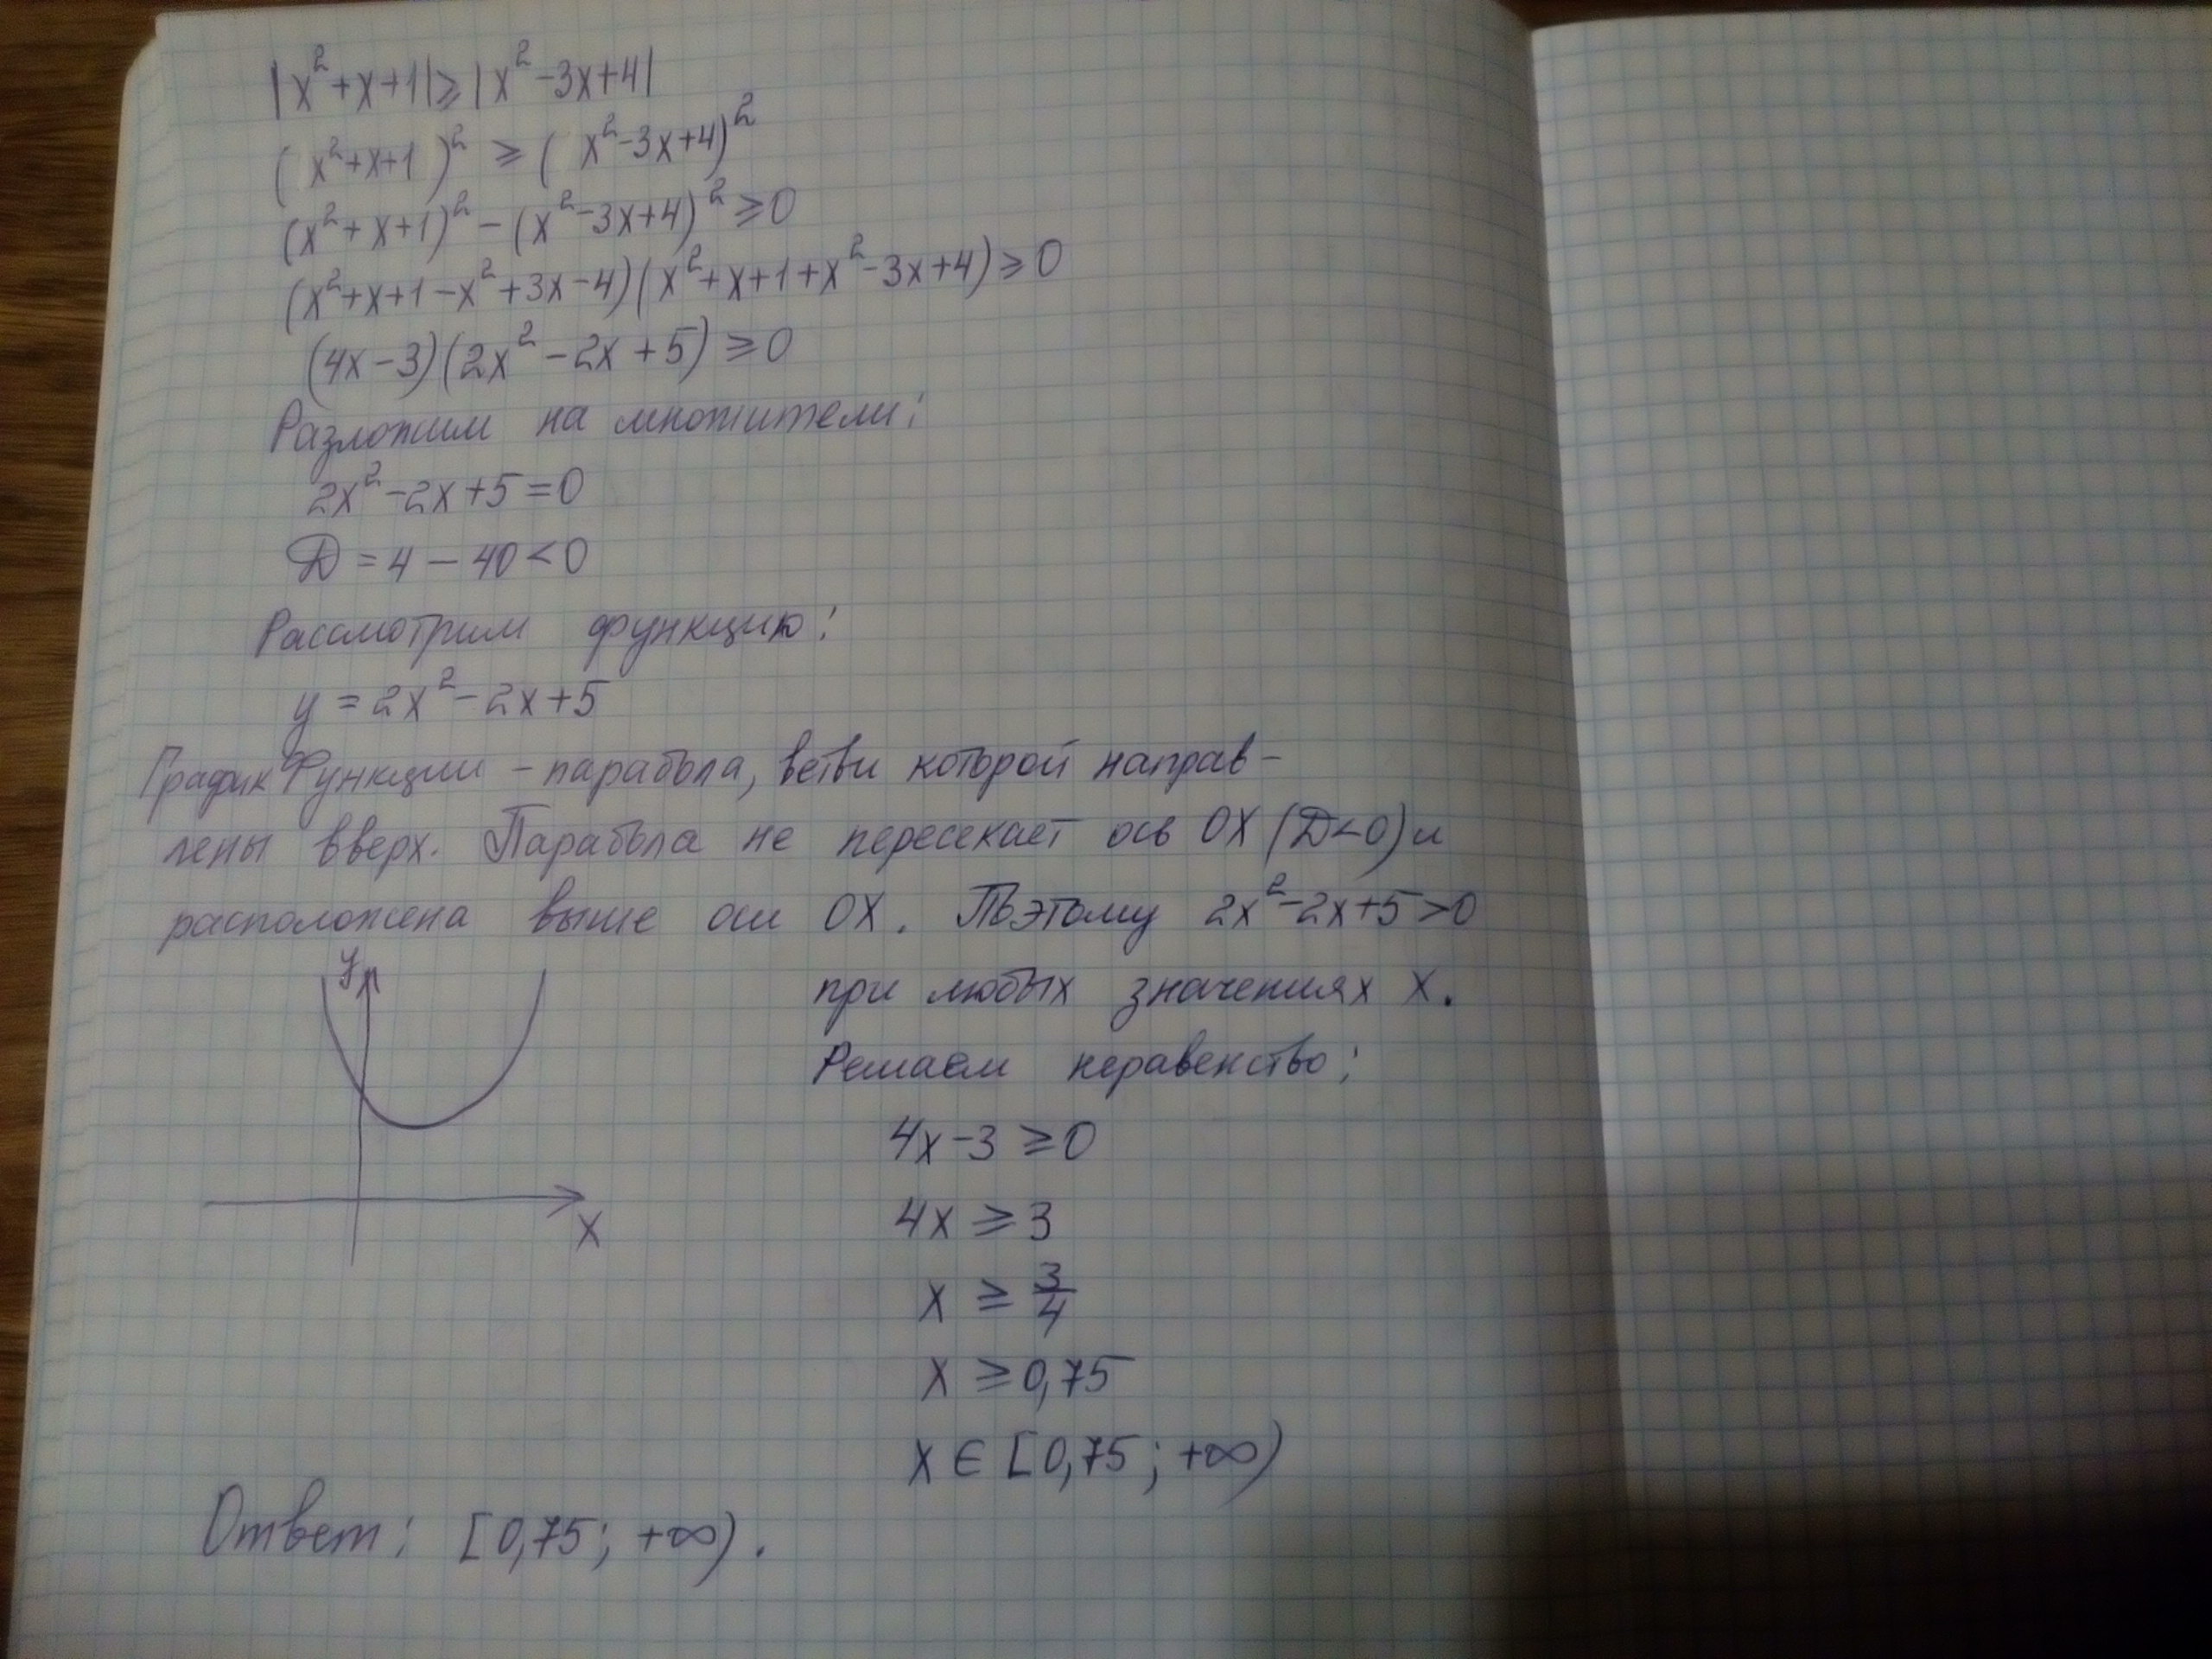 |x²+x+1|≥|x²-3x+4|
(x²+x+1)² ≥ (x²-3x+4)²
(x²+x+1)² - (x²-3x+4)² ≥ 0
(x²+x+1-x²+3x-4)(x²+x+1+x²-3x+4) ≥ 0
(4x-3)(2x²-2x+5) ≥ 0
Разложим на множители:
2x²-2x+5=0
D = 4 - 40 < 0
Рассмотрим функцию:
y = 2x²-2x+5
График функции - парабола, ветви которой направ-
лены вверх. Парабола не пересекает ось OX (D<0) и
расположена выше оси OX. Поэтому 2x²-2x+5>0
при любых значениях x.
Решаем неравенство:
4x-3 ≥ 0
4x ≥ 3
x ≥ 3/4
x ≥ 0,75
x ∈ [0,75; +∞)
y
x
Ответ: [0,75; +∞).